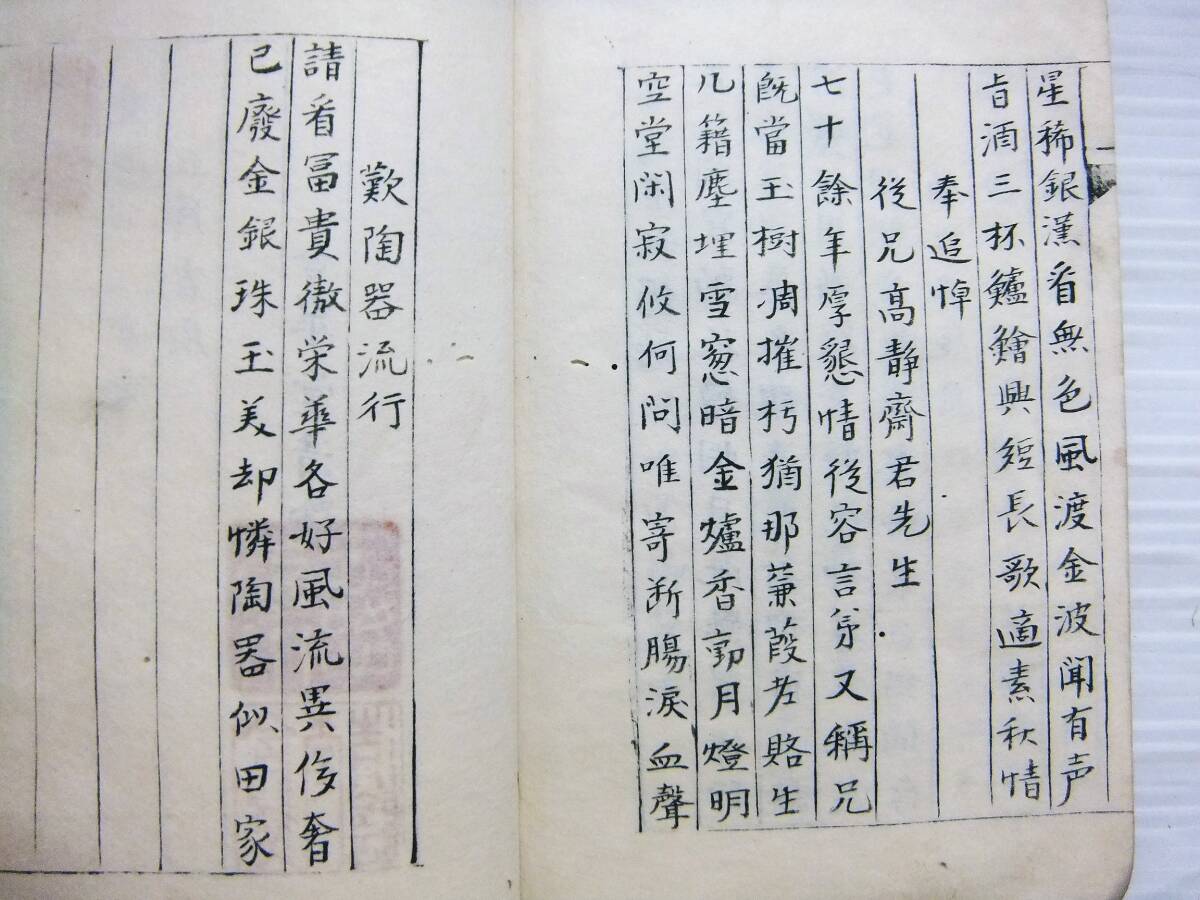 星稀銀漢看無色風渡金波聞有声
旨酒三杯鱸鱠興短長歌適素秋情
奉追悼
従兄高静齋君先生
七十餘年厚懇情従容言弟又稱兄
既當玉樹凋摧朽猶那蒹葭老賂生
几籍塵埋雪窓暗金爐香動月燈明
空堂閑寂攸何問唯寄断腸涙血聲
歎陶器流行
請看冨貴徹栄華各好風流異侈奢
已廢金銀珠玉美却憐陶器似田家